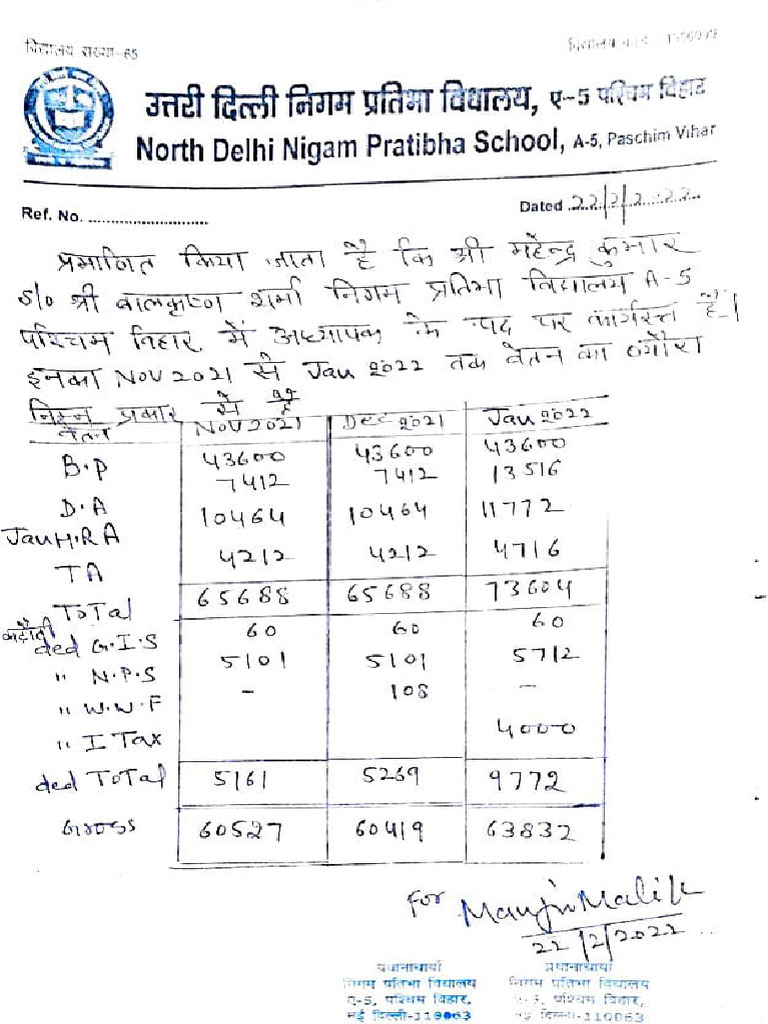 विद्यालय संख्या-65
उत्तरी दिल्ली निगम प्रतिभा विद्यालय, ए-5 पश्चिम विहार
North Delhi Nigam Pratibha School, A-5, Paschim Vihar
Ref. No. ............................ Dated 22/2/2022
प्रमाणित किया जाता है कि श्री महेन्द्र कुमार
S/o श्री बालकृष्ण शर्मा निगम प्रतिभा विद्यालय A-5
पश्चिम विहार में अध्यापक के पद पर कार्यरत है।
इनका Nov 2021 से Jan 2022 तक वेतन का ब्यौरा
निम्न प्रकार से है
वेतन NOV 2021 Dec 2021 Jan 2022
B.P 43600 43600 43600
D.A 7412 7412 13516
Jau H.RA 10464 10464 11772
TA 4212 4212 4716
ToTal 65688 65688 73604
कटौती
ded G.I.S 60 60 60
" N.P.S 5101 5101 5712
" W.W.F - 108 -
" I Tax 4000
ded ToTal 5161 5269 9772
Gross 60527 60419 63832
for
22/2/2022
प्रधानाचार्या प्रधानाचार्या
निगम प्रतिभा विद्यालय निगम प्रतिभा विद्यालय
ए-5, पश्चिम विहार, ए-5, पश्चिम विहार,
नई दिल्ली-110063 नई दिल्ली-110063